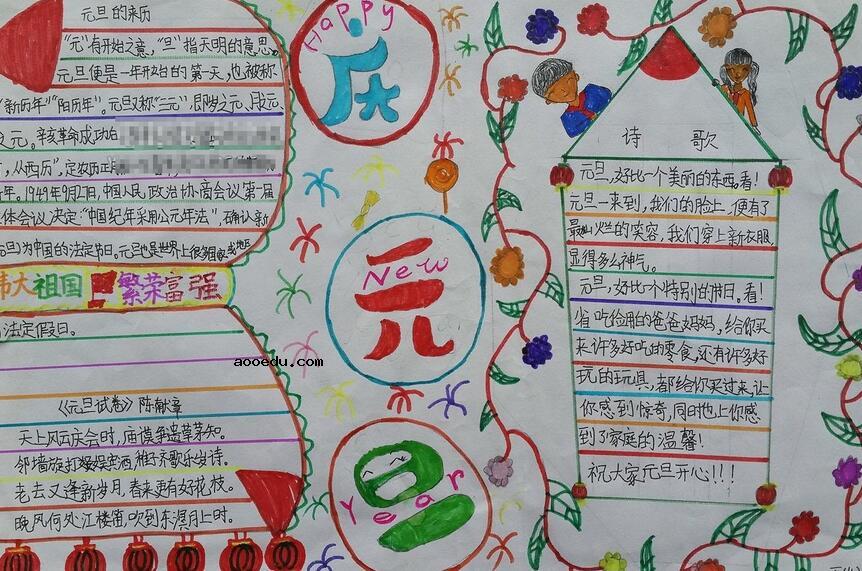 元旦的来历
"元"有开始之意，"旦"指天明的意思。
元旦便是一年开始的第一天，也被称
"新历年""阳历年"。元旦又称"三元"，即岁之元、月之元
之元。辛亥革命成功后
，从西历"，定农历正月
年。1949年9月27日，中国人民政治协商会议第一届
体会议决定："中国纪年采用公元年法"，确认新
元旦）为中国的法定节日。元旦也是世界上很多国家或地区
伟大祖国 繁荣富强
法定假日。
aooedu.com
《元旦试卷》陈献章
天上风云庆会时，庙谟争遗草茅知。
邻墙旋打娱宾酒，稚子齐歌乐岁诗。
老去又逢新岁月，春来更有好花枝。
晚风何处江楼笛，吹到东溟月上时。
Happy
庆
New
元
Year
旦
诗 歌
元旦，好比一个美丽的东西。看！
元旦一来到，我们的脸上，便有了
最灿烂的笑容，我们穿上新衣服，
显得多么神气。
元旦，好比个特别的节日。看！
省吃俭用的爸爸妈妈，给你买
来许多好吃的零食，还有许多好
玩的玩具，都给你买过来，让
你感到惊奇，同时也上你感
到了家庭的温馨！
祝大家元旦开心！！！